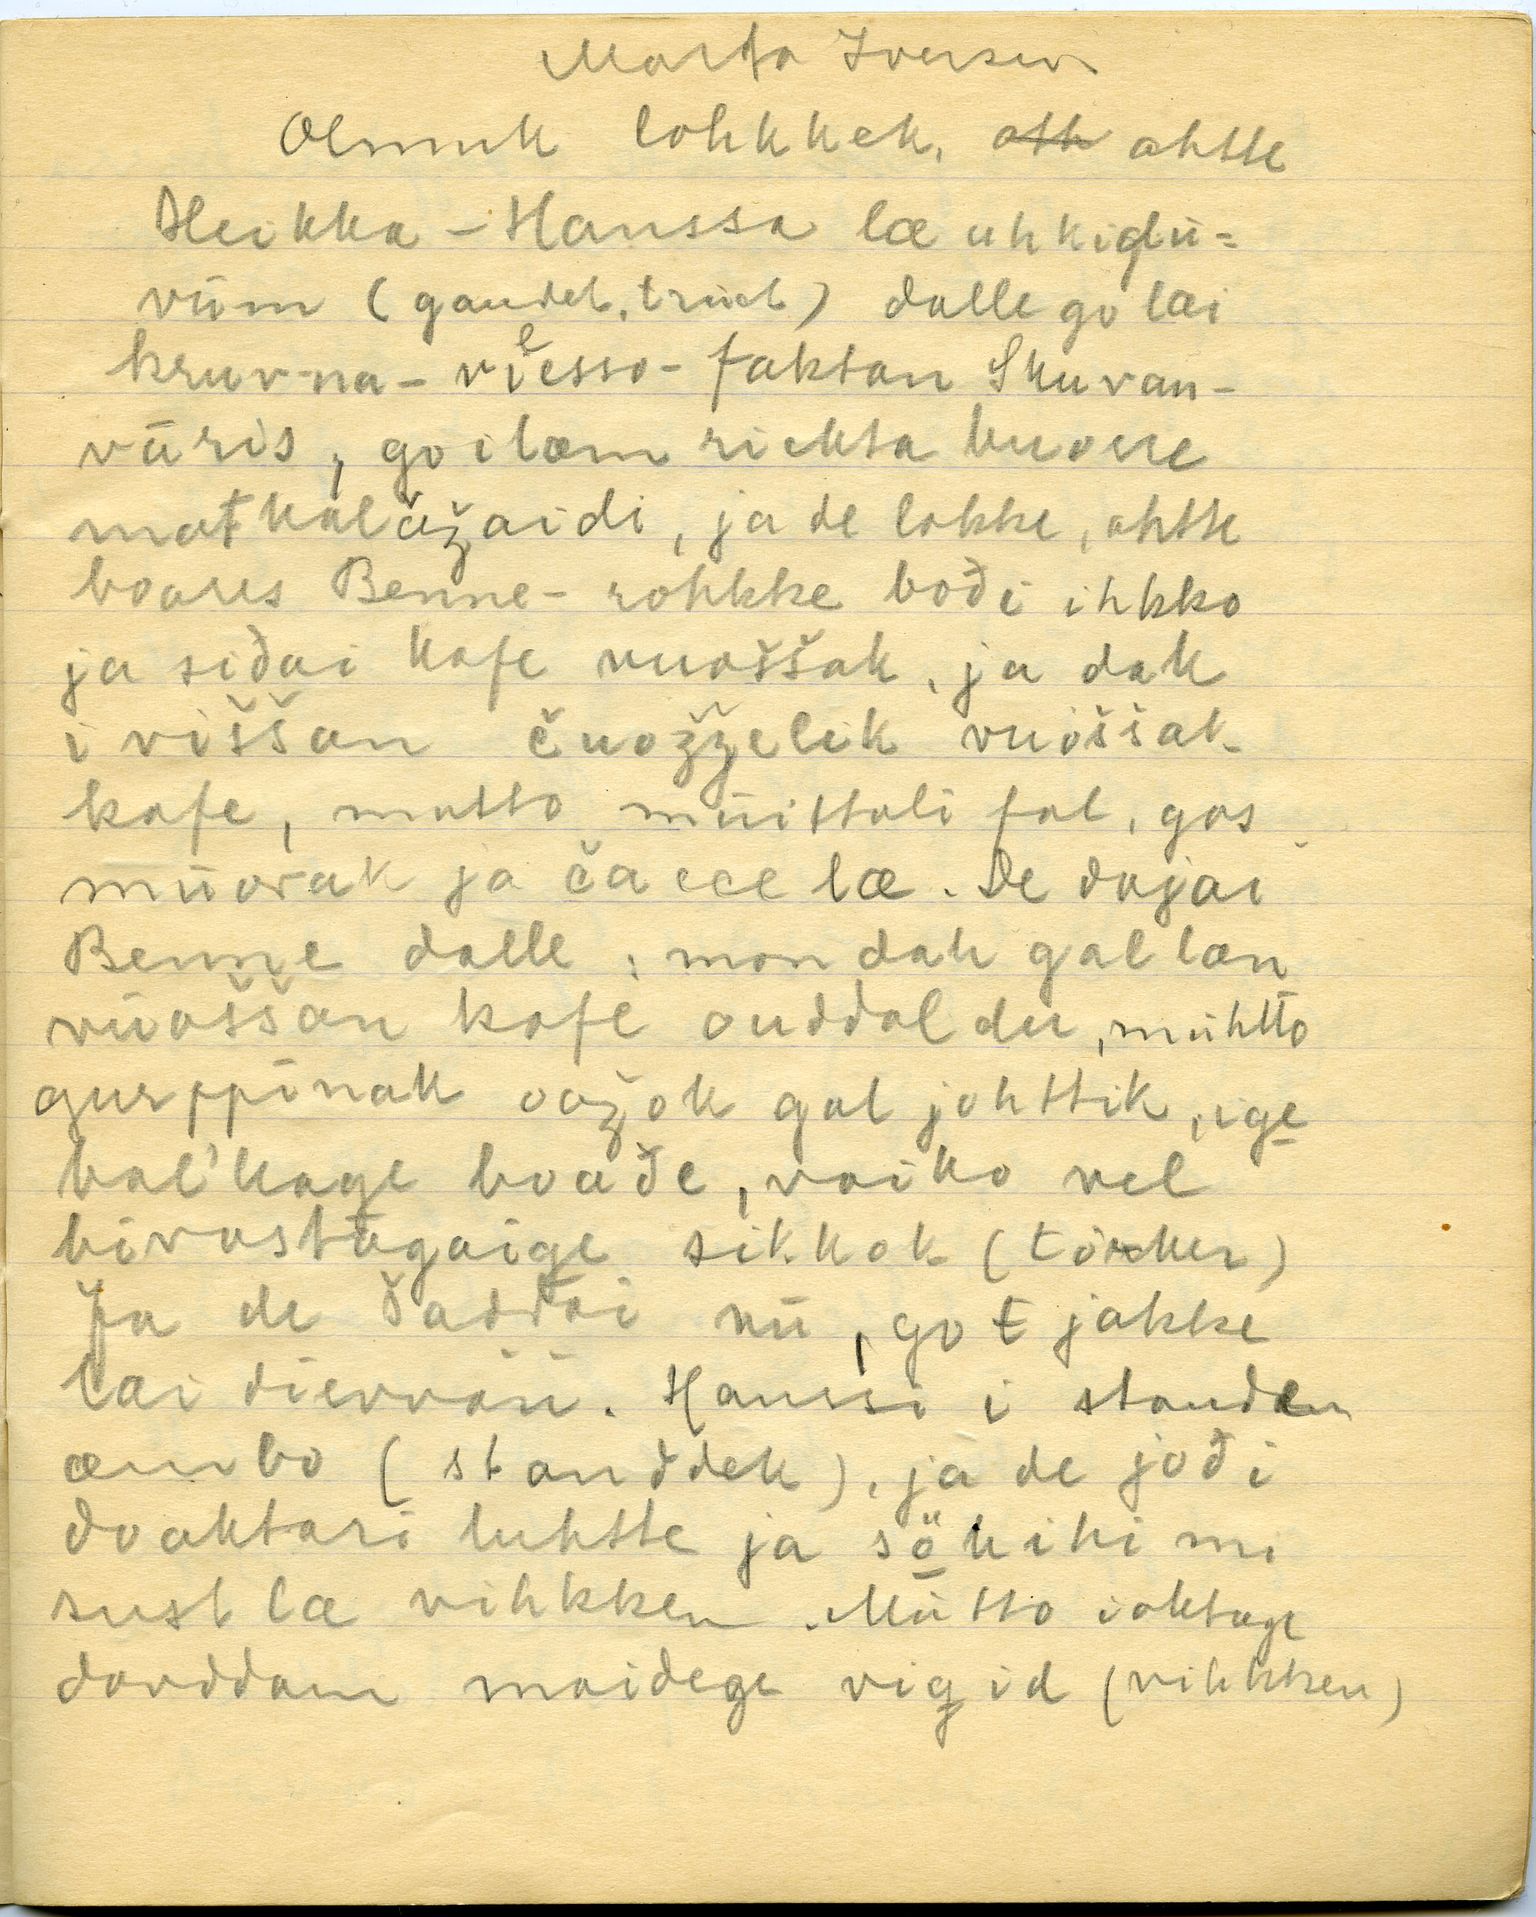 Marta Iversen
Olmuk lohkkek, ~~ath~~ ahtte
Heikka-Hanssa læ uhkiđu=
vüm (gaudet, truet) dalle go læi
kruvna-viesso-faktan Skuvan-
vāris, go ilæm riekta buorre
matkalāǯaidi, ja de lokke, ahtte
boares Benne-rohkke bođi ihkko
ja siđai kafe vuoššak, ja dak
i viššan čuoǯǯelik vuoššat
kafe, mutto müittali fal, gos
müorak ja čacce læ. De dajai
Benne dalle: mon dak gal læn
vüoššan kafe ouddal du, mühtto
gurppinak oaǯok gal johttik, ige
bal'kage boađe, vaiko vel
bivastagaige sikkok (tørker)
Ja de šaddai nü, got jakke
læi dievvan. Hanssi i standen
æmbo (standdek), ja de jođi
doaktari luhtte ja sökihi mi
sust læ vihkken. Mütto i aktage
dovddam maidege vigid (vihkken)